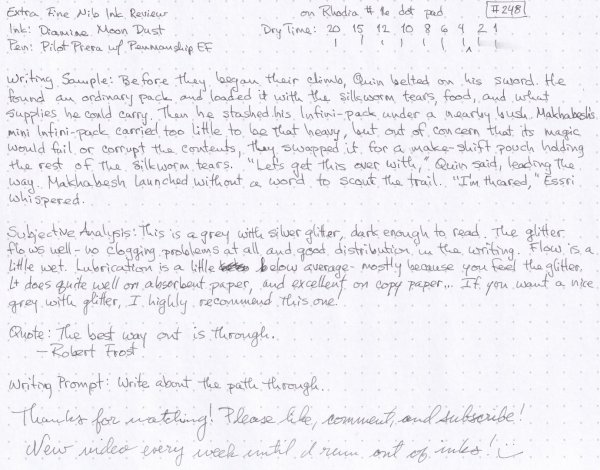 Extra Fine Nib Ink Review on Rhodia #16 dot pad #248
Ink: Diamine Moon Dust Dry Time: 20 15 12 10 8 6 4 2 1
Pen: Pilot Prera w/ Penmanship EF
Writing Sample: Before they began their climb, Quin belted on his sword. He
found an ordinary pack and loaded it with the silkworm tears, food, and what
supplies he could carry. Then he stashed his Infini-pack under a nearby bush. Makhabesh's
mini Infini-pack carried too little to be that heavy, but out of concern that its magic
would fail or corrupt the contents, they swapped it for a make-shift pouch holding
the rest of the silkworm tears. "Let's get this over with," Quin said, leading the
way. Makhabesh launched without a word to scout the trail. "I'm thcared," Essri
whispered.
Subjective Analysis: This is a grey with silver glitter, dark enough to read. The glitter
flows well - no clogging problems at all and good distribution in the writing. Flow is a
little wet. Lubrication is a little below average - mostly because you feel the glitter.
It does quite well on absorbent paper, and excellent on copy paper... If you want a nice
grey with glitter, I highly recommend this one!
Quote: The best way out is through.
— Robert Frost
Writing Prompt: Write about the path through...
Thanks for watching! Please like, comment, and subscribe!
New video every week until I run out of inks!